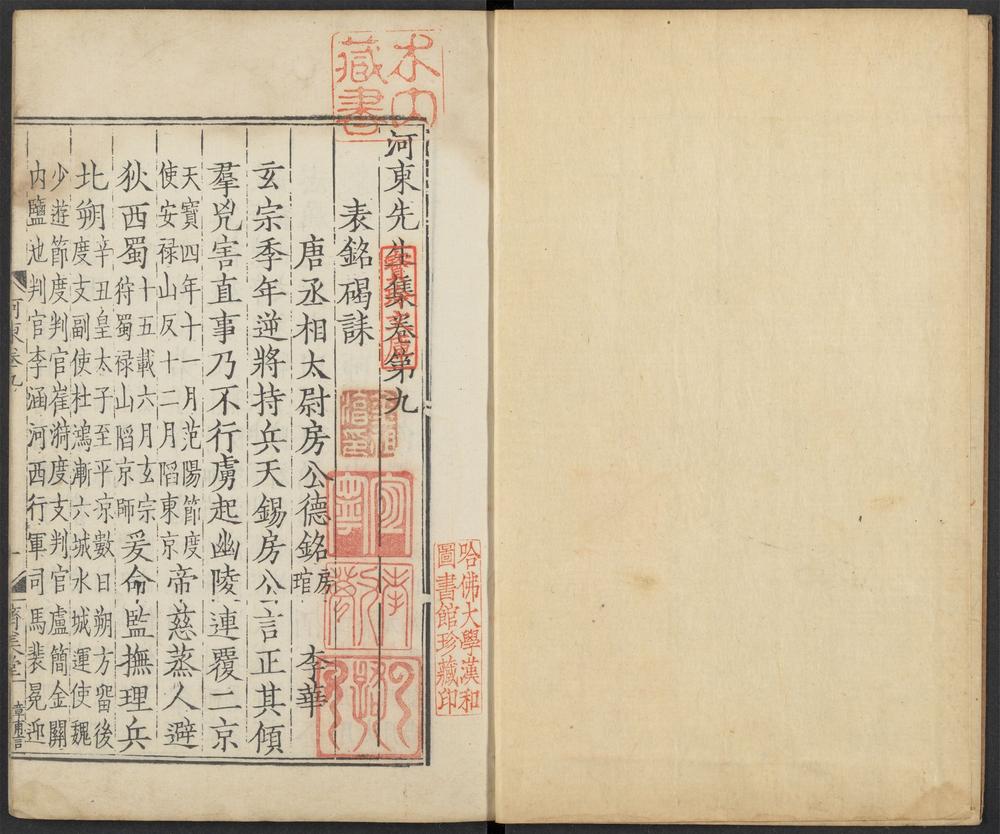 木
藏書
河東先生集卷第九
表銘碣誄
唐丞相太尉房公德銘房琯 李華
玄宗季年逆將持兵天錫房公言正其傾
羣兇害直事乃不行虜起幽陵連覆二京
天寶四年十一月范陽節度
使安禄山反十二月陷東京
帝慈蒸人避
狄西蜀
十五載六月玄宗
狩蜀禄山陷京師
爰命監撫理兵
北朔
辛丑皇太子至平凉數日朔方留後
度支副使杜鴻漸六城水城運使魏
少遊節度判官崔漪度支判官盧簡金關
内鹽池判官李涵河西行軍司馬裴冕迎
河東卷九
一
濟美堂
哈佛大學漢和
圖書館珍藏印